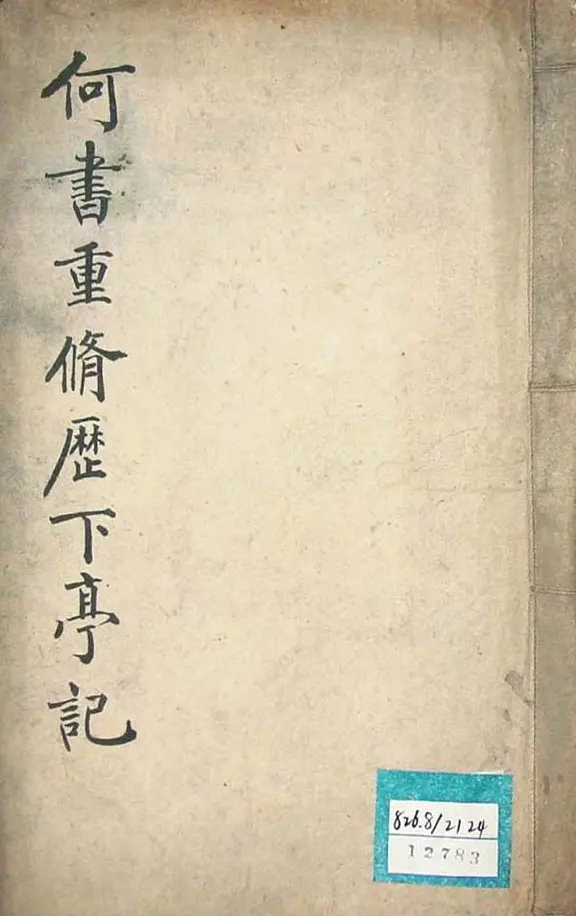 何書重脩歴下亭記
826.8/2124
12783